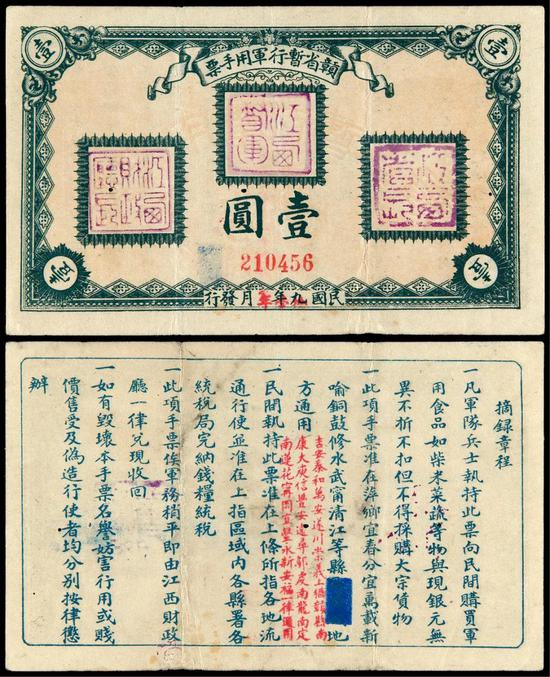 贛省暫行軍用手票
壹
壹
江西督軍
江西財政廳長
壹圓
210456
壹
壹
民國九年 月發行
摘錄章程
一凡軍隊兵士執持此票向民間購買軍
用食品如柴米菜蔬等物與現銀元無
異不折不扣但不得採購大宗貨物
一此項手票准在萍鄉宜春分宜萬載新
喻銅鼓修水武甯清江等縣 地
方通用
吉安泰和萬安遂川崇義上猶贛縣南
康大庾信豐安遠尋鄔虔南龍南定
南蓮花甯岡宜豐永新安福一律通用
一民間執持此票准在上條所指各地流
通行使並准在上指區域內各縣署各
統稅局完納錢糧統稅
一此項手票俟軍務稍平即由江西財政
廳一律兌現收回
一如有毀壞本手票名譽妨害行用或賤
價售受及偽造行使者均分別按律懲
辦